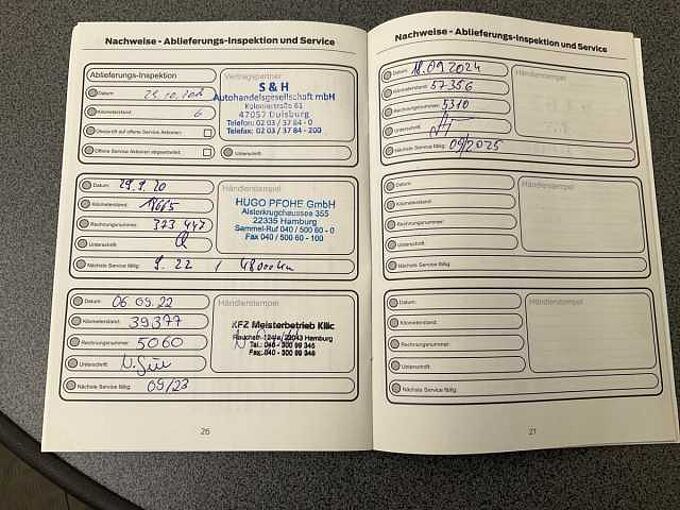 Nachweise - Ablieferungs-Inspektion und Service
Ablieferungs-Inspektion
Datum:
Kilometerstand: 6
Offene Service Aktionen abgearbeitet:
Vertragspartner
S & H
Autohandelsgesellschaft mbH
Koloniestraße 61
47057 Duisburg
Telefon: 02 03 / 37 84 - 0
Telefax: 02 03 / 37 84 - 200
Unterschrift:
Datum: 29.9.20
Kilometerstand:
Rechnungsnummer: 373 447
Unterschrift:
Nächste Service fällig: 9.22 / 48000 km
Händlerstempel
HUGO PFOHE GmbH
Alsterkrugchaussee 355
22335 Hamburg
Sammel-Ruf 040 / 500 60 - 0
Fax 040 / 500 60 - 100
Datum: 06.09.22
Kilometerstand: 39377
Rechnungsnummer: 5060
Unterschrift:
Nächste Service fällig: 09/23
Händlerstempel
KFZ Meisterbetrieb Kilic
22043 Hamburg
26
Nachweise - Ablieferungs-Inspektion und Service
Datum: 18.09.2024
Kilometerstand: 57356
Rechnungsnummer: 5310
Unterschrift:
Nächste Service fällig: 09/2025
Händlerstempel
Datum:
Kilometerstand:
Rechnungsnummer:
Unterschrift:
Nächste Service fällig:
Händlerstempel
Datum:
Kilometerstand:
Rechnungsnummer:
Unterschrift:
Nächste Service fällig:
Händlerstempel
27